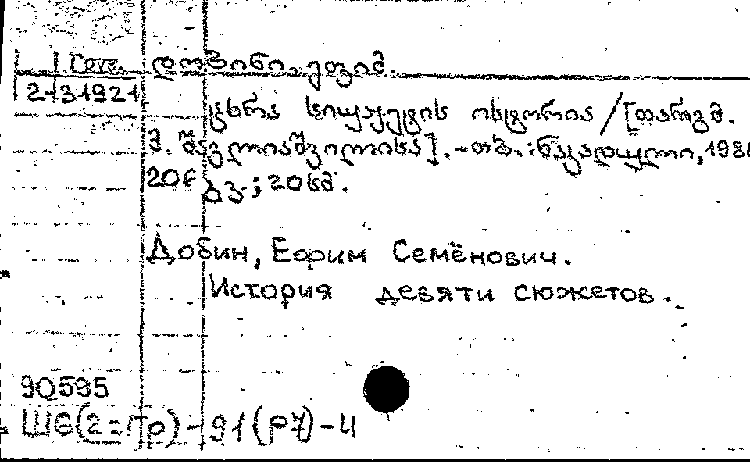 დობინი, ეფიმ.
2-31921
ცხრა სიუჟეტის ისტორია / [თარგმ.
შავლიაშვილისა]. - თბ.: ნაკადული, 198
206 გვ.; 20სმ.
Добин, Ефим Семёнович.
История девяти сюжетов.
90595
Ш6(2=Гр)-91(Р7)-4